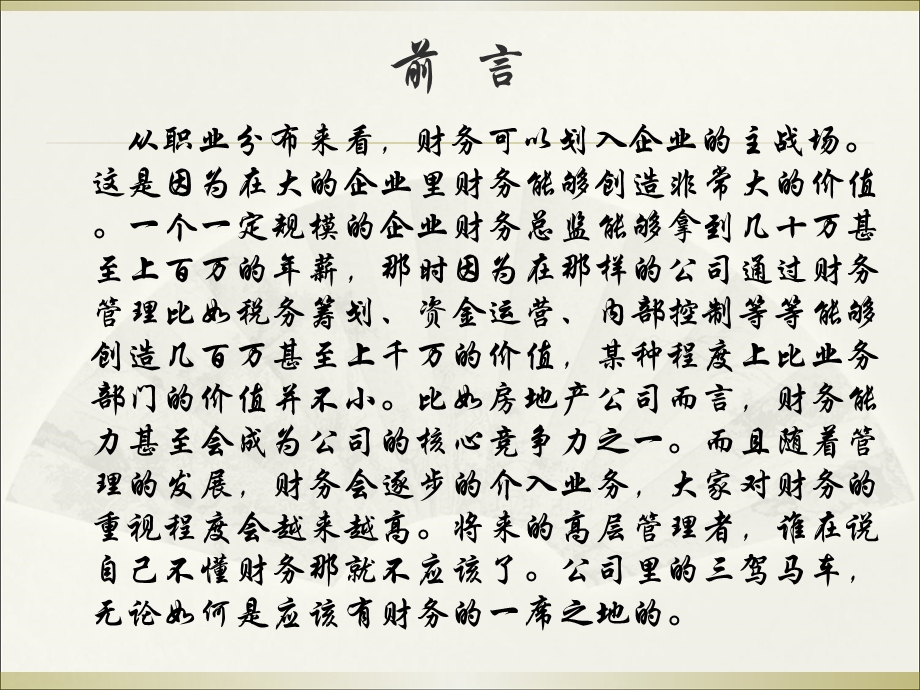 前 言
从职业分布来看，财务可以划入企业的主战场。
这是因为在大的企业里财务能够创造非常大的价值
。一个一定规模的企业财务总监能够拿到几十万甚
至上百万的年薪，那时因为在那样的公司通过财务
管理比如税务筹划、资金运营、内部控制等等能够
创造几百万甚至上千万的价值，某种程度上比业务
部门的价值并不小。比如房地产公司而言，财务能
力甚至会成为公司的核心竞争力之一。而且随着管
理的发展，财务会逐步的介入业务，大家对财务的
重视程度会越来越高。将来的高层管理者，谁在说
自己不懂财务那就不应该了。公司里的三驾马车，
无论如何是应该有财务的一席之地的。